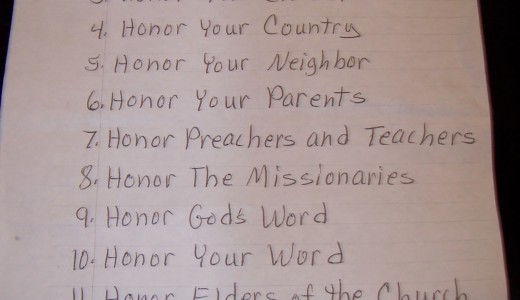 4. Honor Your Country
5. Honor Your Neighbor
6. Honor Your Parents
7. Honor Preachers and Teachers
8. Honor The Missionaries
9. Honor God's Word
10. Honor Your Word
11. Honor Elders of the Church